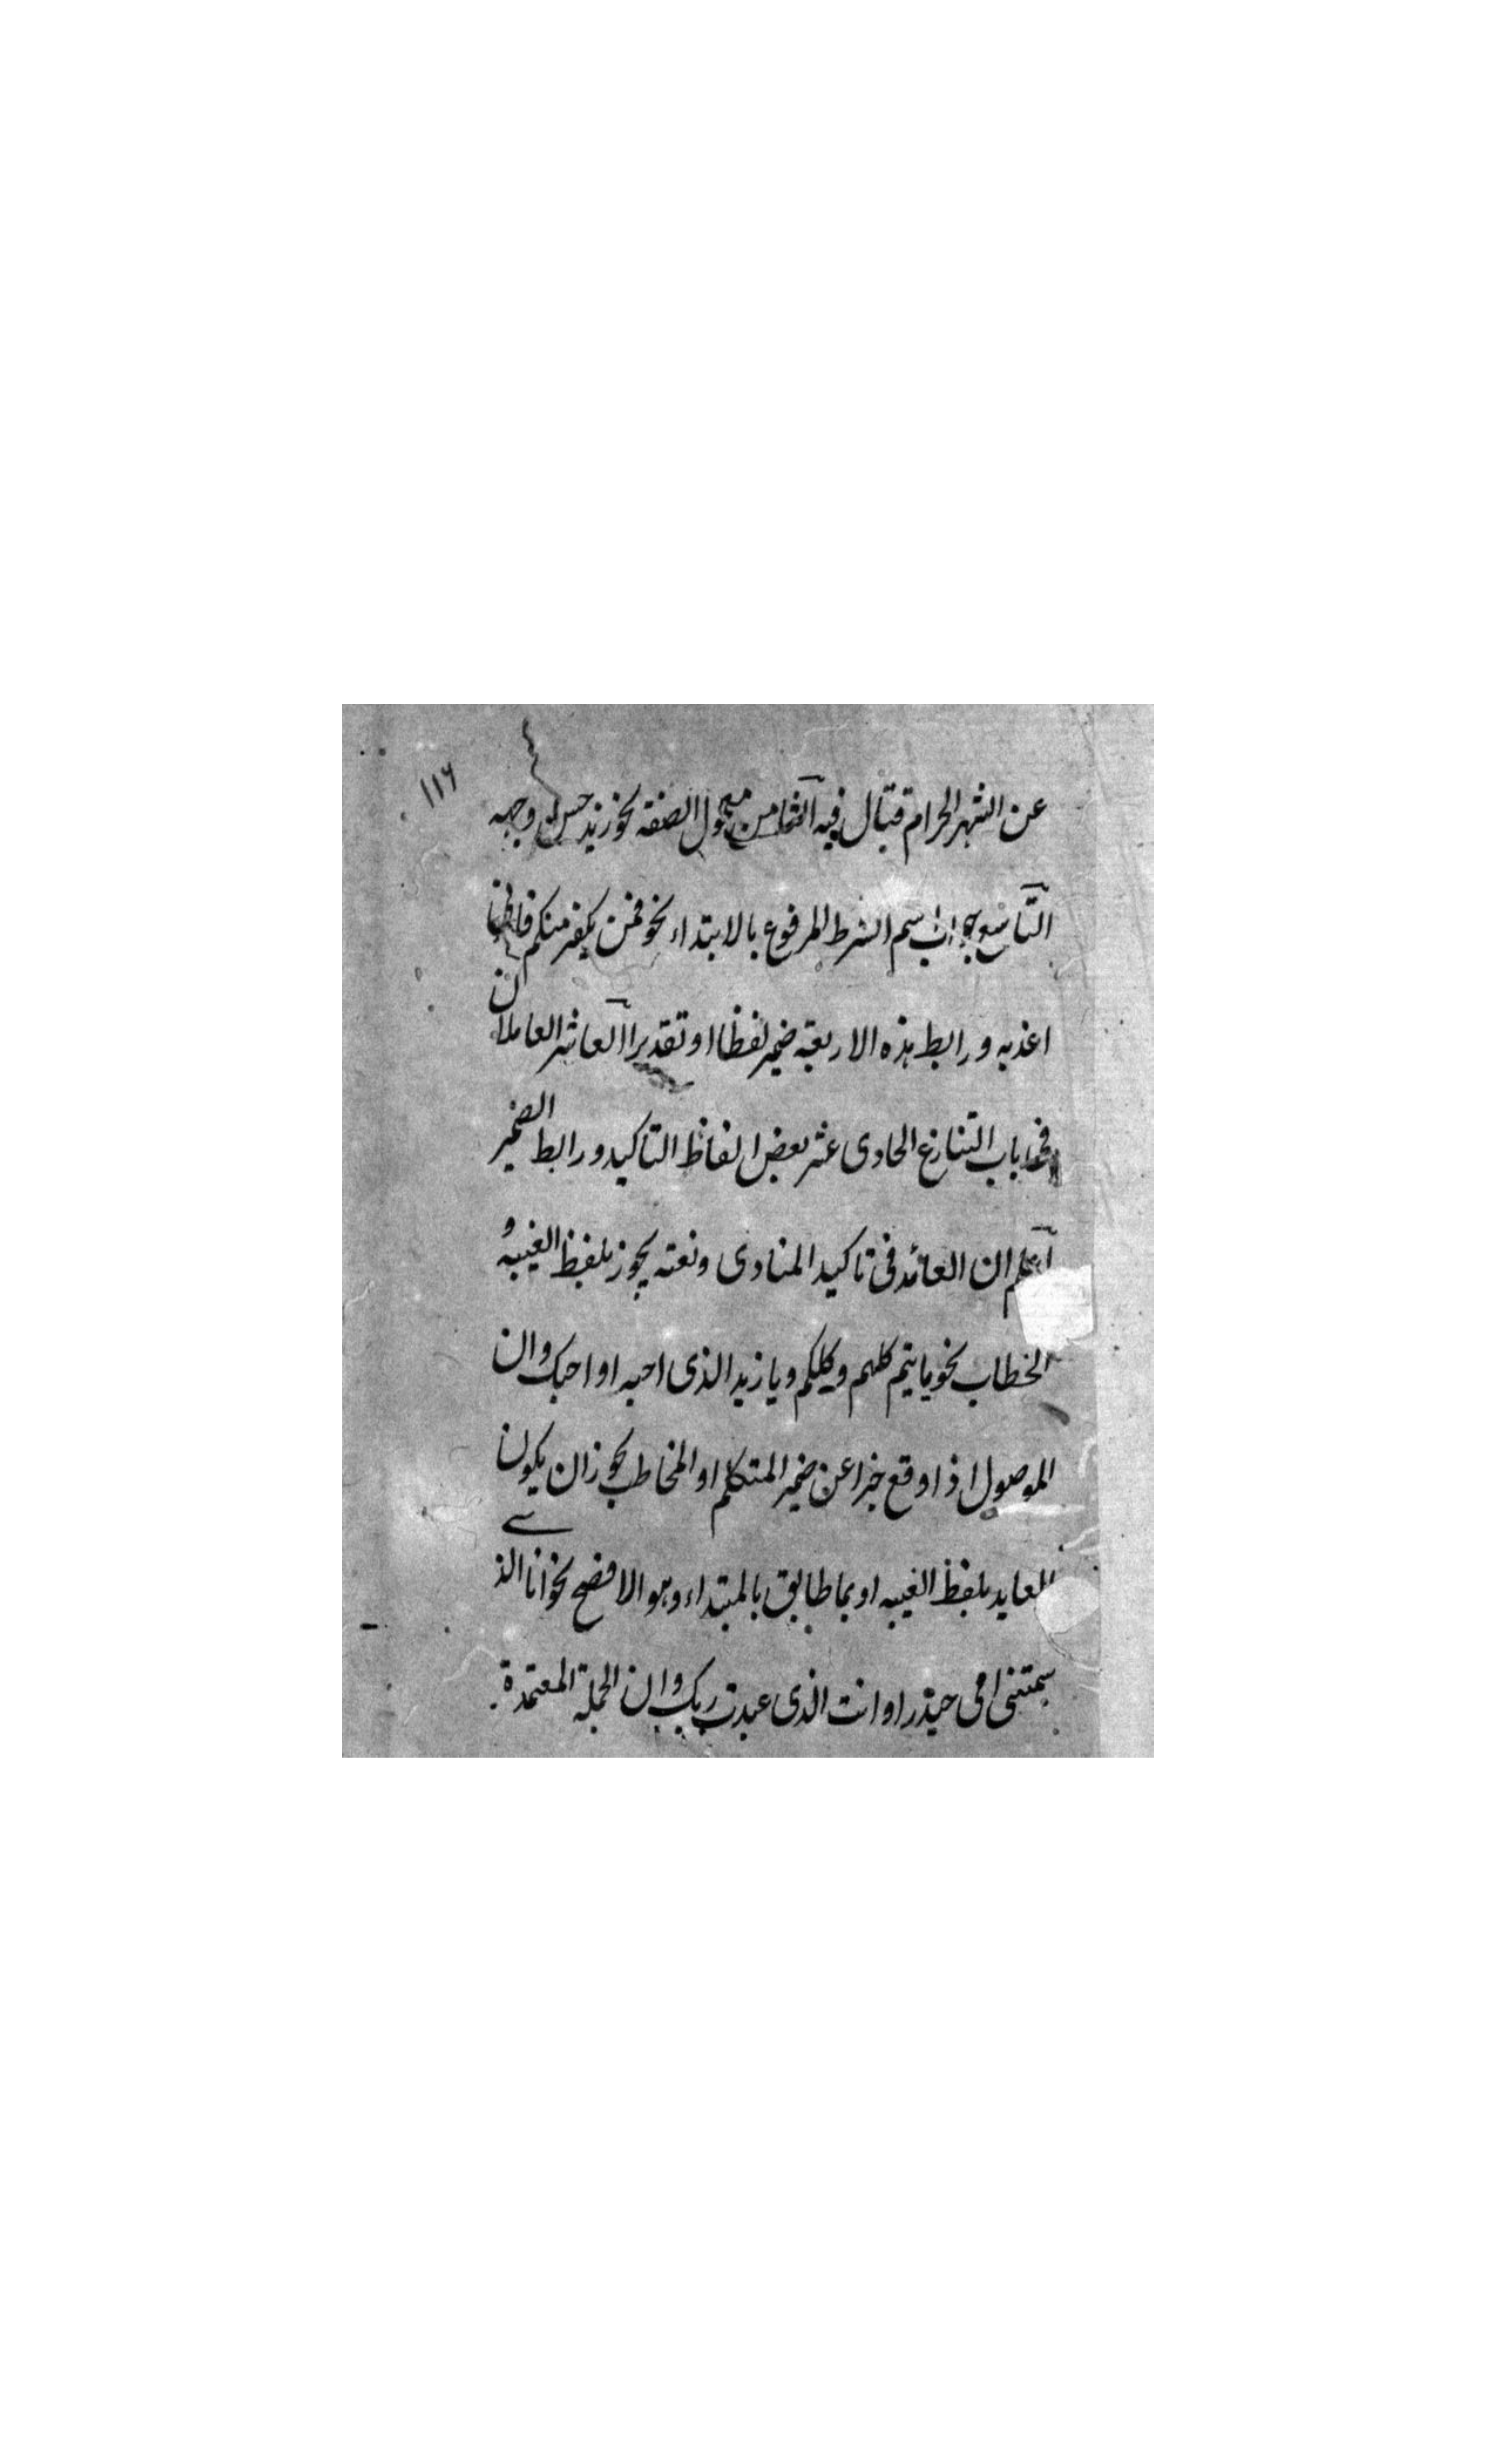 ١١٦
عن الشهر الحرام قتال فيه الثامن معمول الصفة نحو زيد حسن وجهه
التاسع جواب اسم الشرط المرفوع بالابتداء نحو فمن يكفر منكم فانى
اعذبه ورابط هذه الاربعة ضمير لفظا او تقديرا العاشر العاملان
فى باب التنازع الحادى عشر بعض الفاظ التاكيد ورابط الضمير
اعلم ان العائد فى تاكيد المنادى ونعته يجوز بلفظ الغيبه و
الخطاب نحو يا تيم كلهم وكلكم ويا زيد الذى احبه او احبك وان
الموصول اذا وقع خبرا عن ضمير المتكلم او المخاطب يجوز ان يكون
العايد بلفظ الغيبه او بما طابق بالمبتداء وهو الافصح نحو انا الذى
سمتنى امى حيدرا وانت الذى عبدت ربك وان الجملة المعتمدة